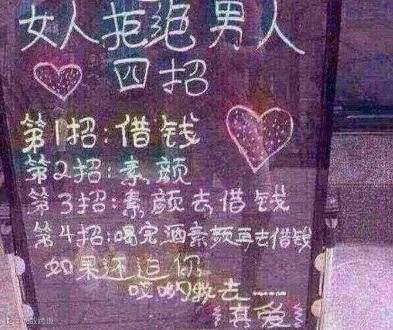 女人拒绝男人
四招
第1招:借钱
第2招:素颜
第3招:素颜去借钱
第4招:喝完酒素颜再去借钱
如果还追你
哎哟喂去----
真爱